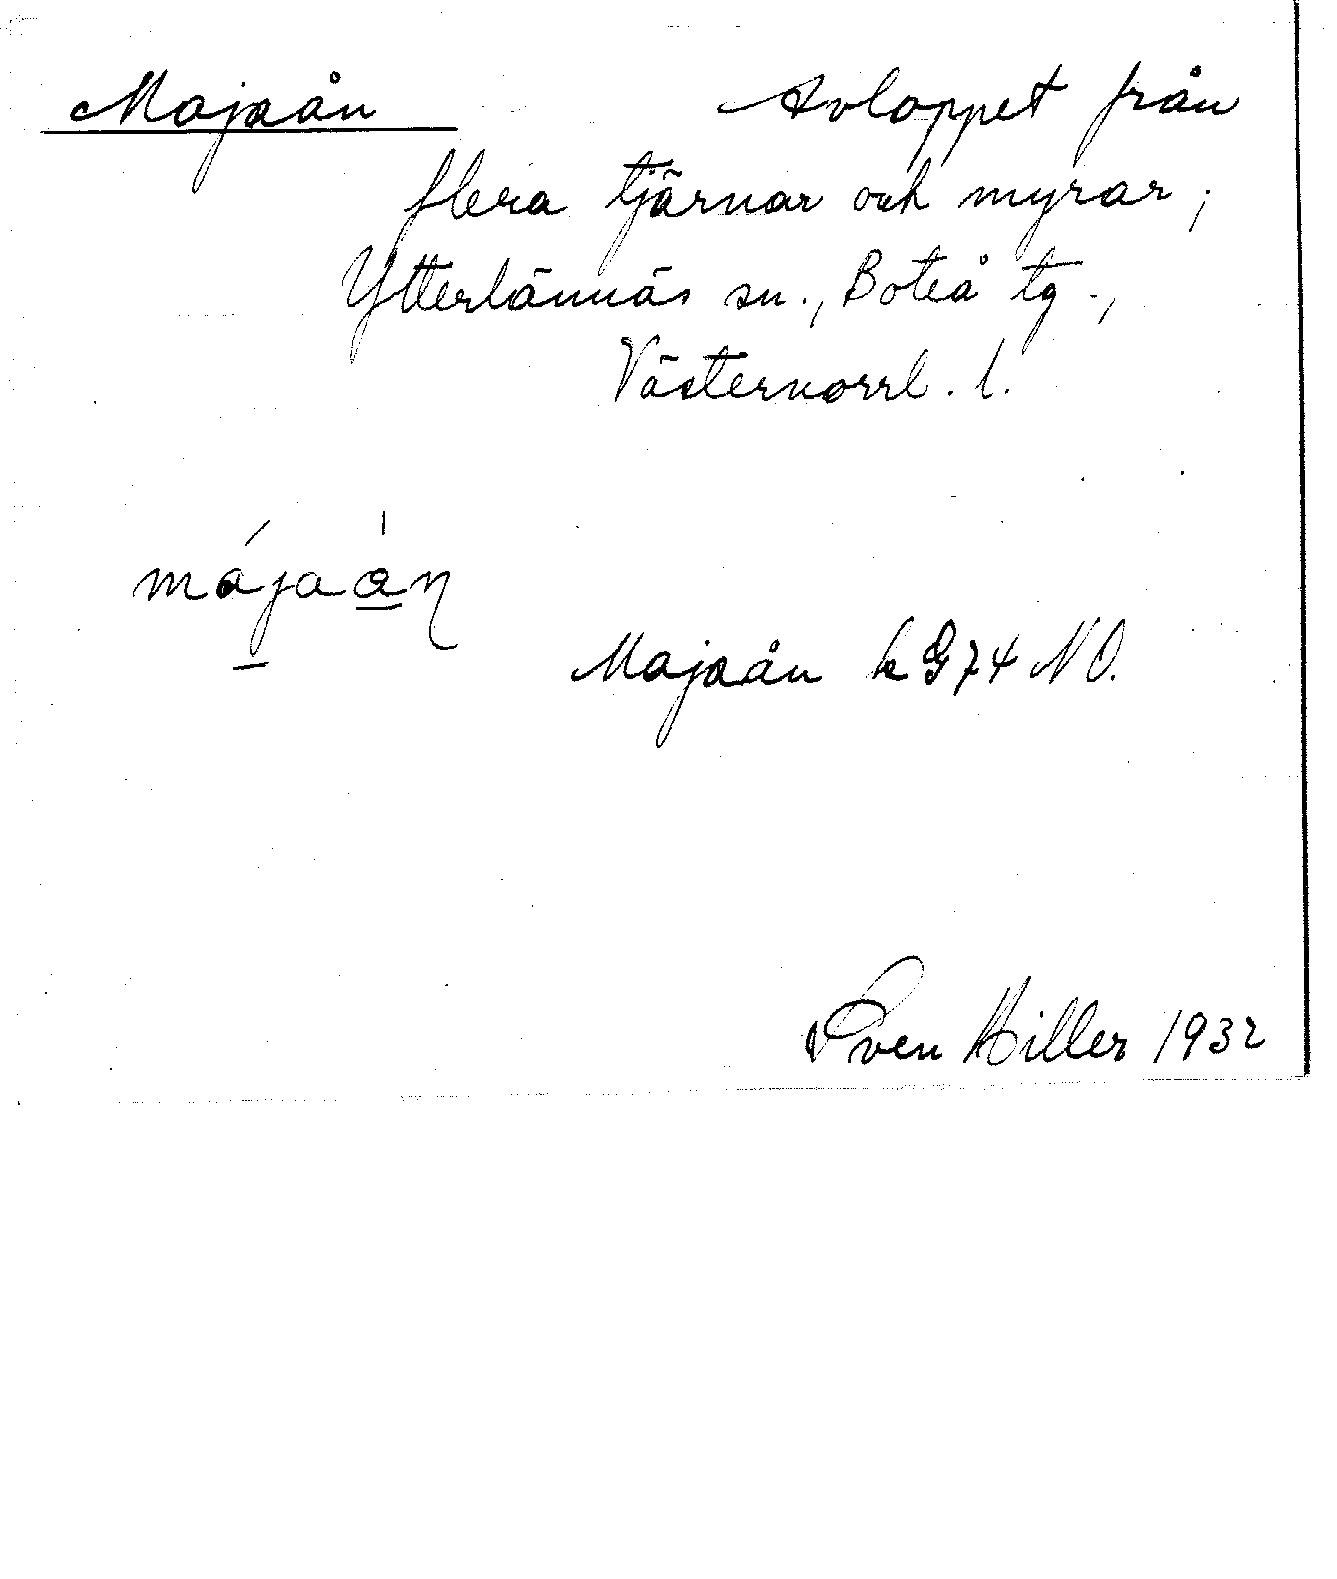 Majaån Avloppet från
flera tjärnar och myrar;
Ytterlännäs sn., Boteå tg.,
Västernorrl. l.
májaán
Majaån k G74 NO.
Sven Hiller 1932